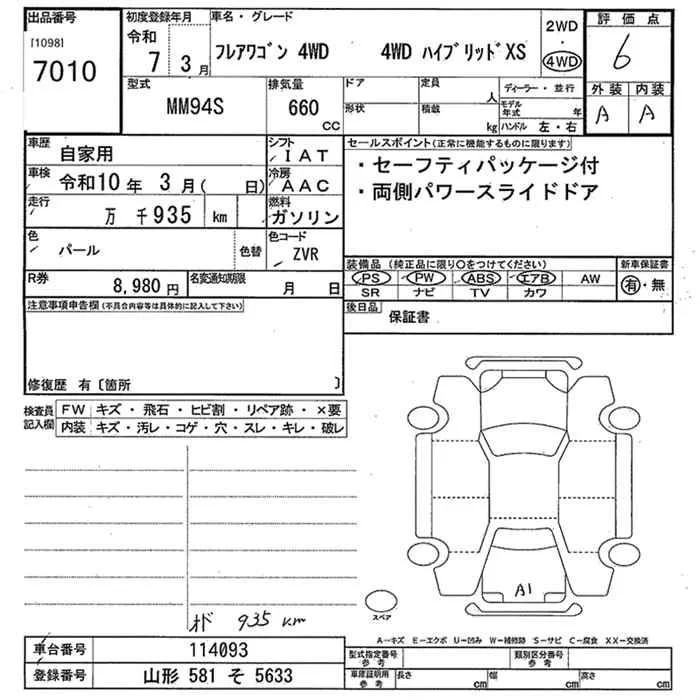 出品番号
[1098]
7010
初度登録年月
令和
7 3月
車名・グレード
フレアワゴン 4WD 4WD ハイブリッドXS
2WD
・
4WD
評価点
6
外装 内装
A A
型式
MM94S
排気量
660
cc
ドア
形状
定員
人
積載
kg
ディーラー・並行
モデル
年式 年
ハンドル 左・右
車歴
自家用
シフト
IAT
車検
令和10年 3月( 日)
冷房
AAC
走行
万 千935 km
燃料
ガソリン
色
パール
色替
色コード
ZVR
R券
8,980円
名変通知期限
月 日
セールスポイント(正常に機能するものに限ります)
・セーフティパッケージ付
・両側パワースライドドア
装備品(純正品に限り○をつけてください)
PS PW ABS エアB AW
SR ナビ TV カワ
新車保証書
有・無
後日品
保証書
注意事項申告欄(不具合内容等は具体的に記入して下さい)
修復歴 有〔箇所 〕
検査員
記入欄
FW キズ・飛石・ヒビ割・リペア跡・×要
内装 キズ・汚レ・コゲ・穴・スレ・キレ・破レ
A1
スペア
オド 935 km
A―キズ E―エクボ U―凹み W―補修跡 S―サビ C―腐食 XX―交換済
車台番号
114093
登録番号
山形 581 そ 5633
型式指定番号
参考
類別区分番号
参考
車庫証明用
参考
長さ
cm
幅
cm
高さ
cm